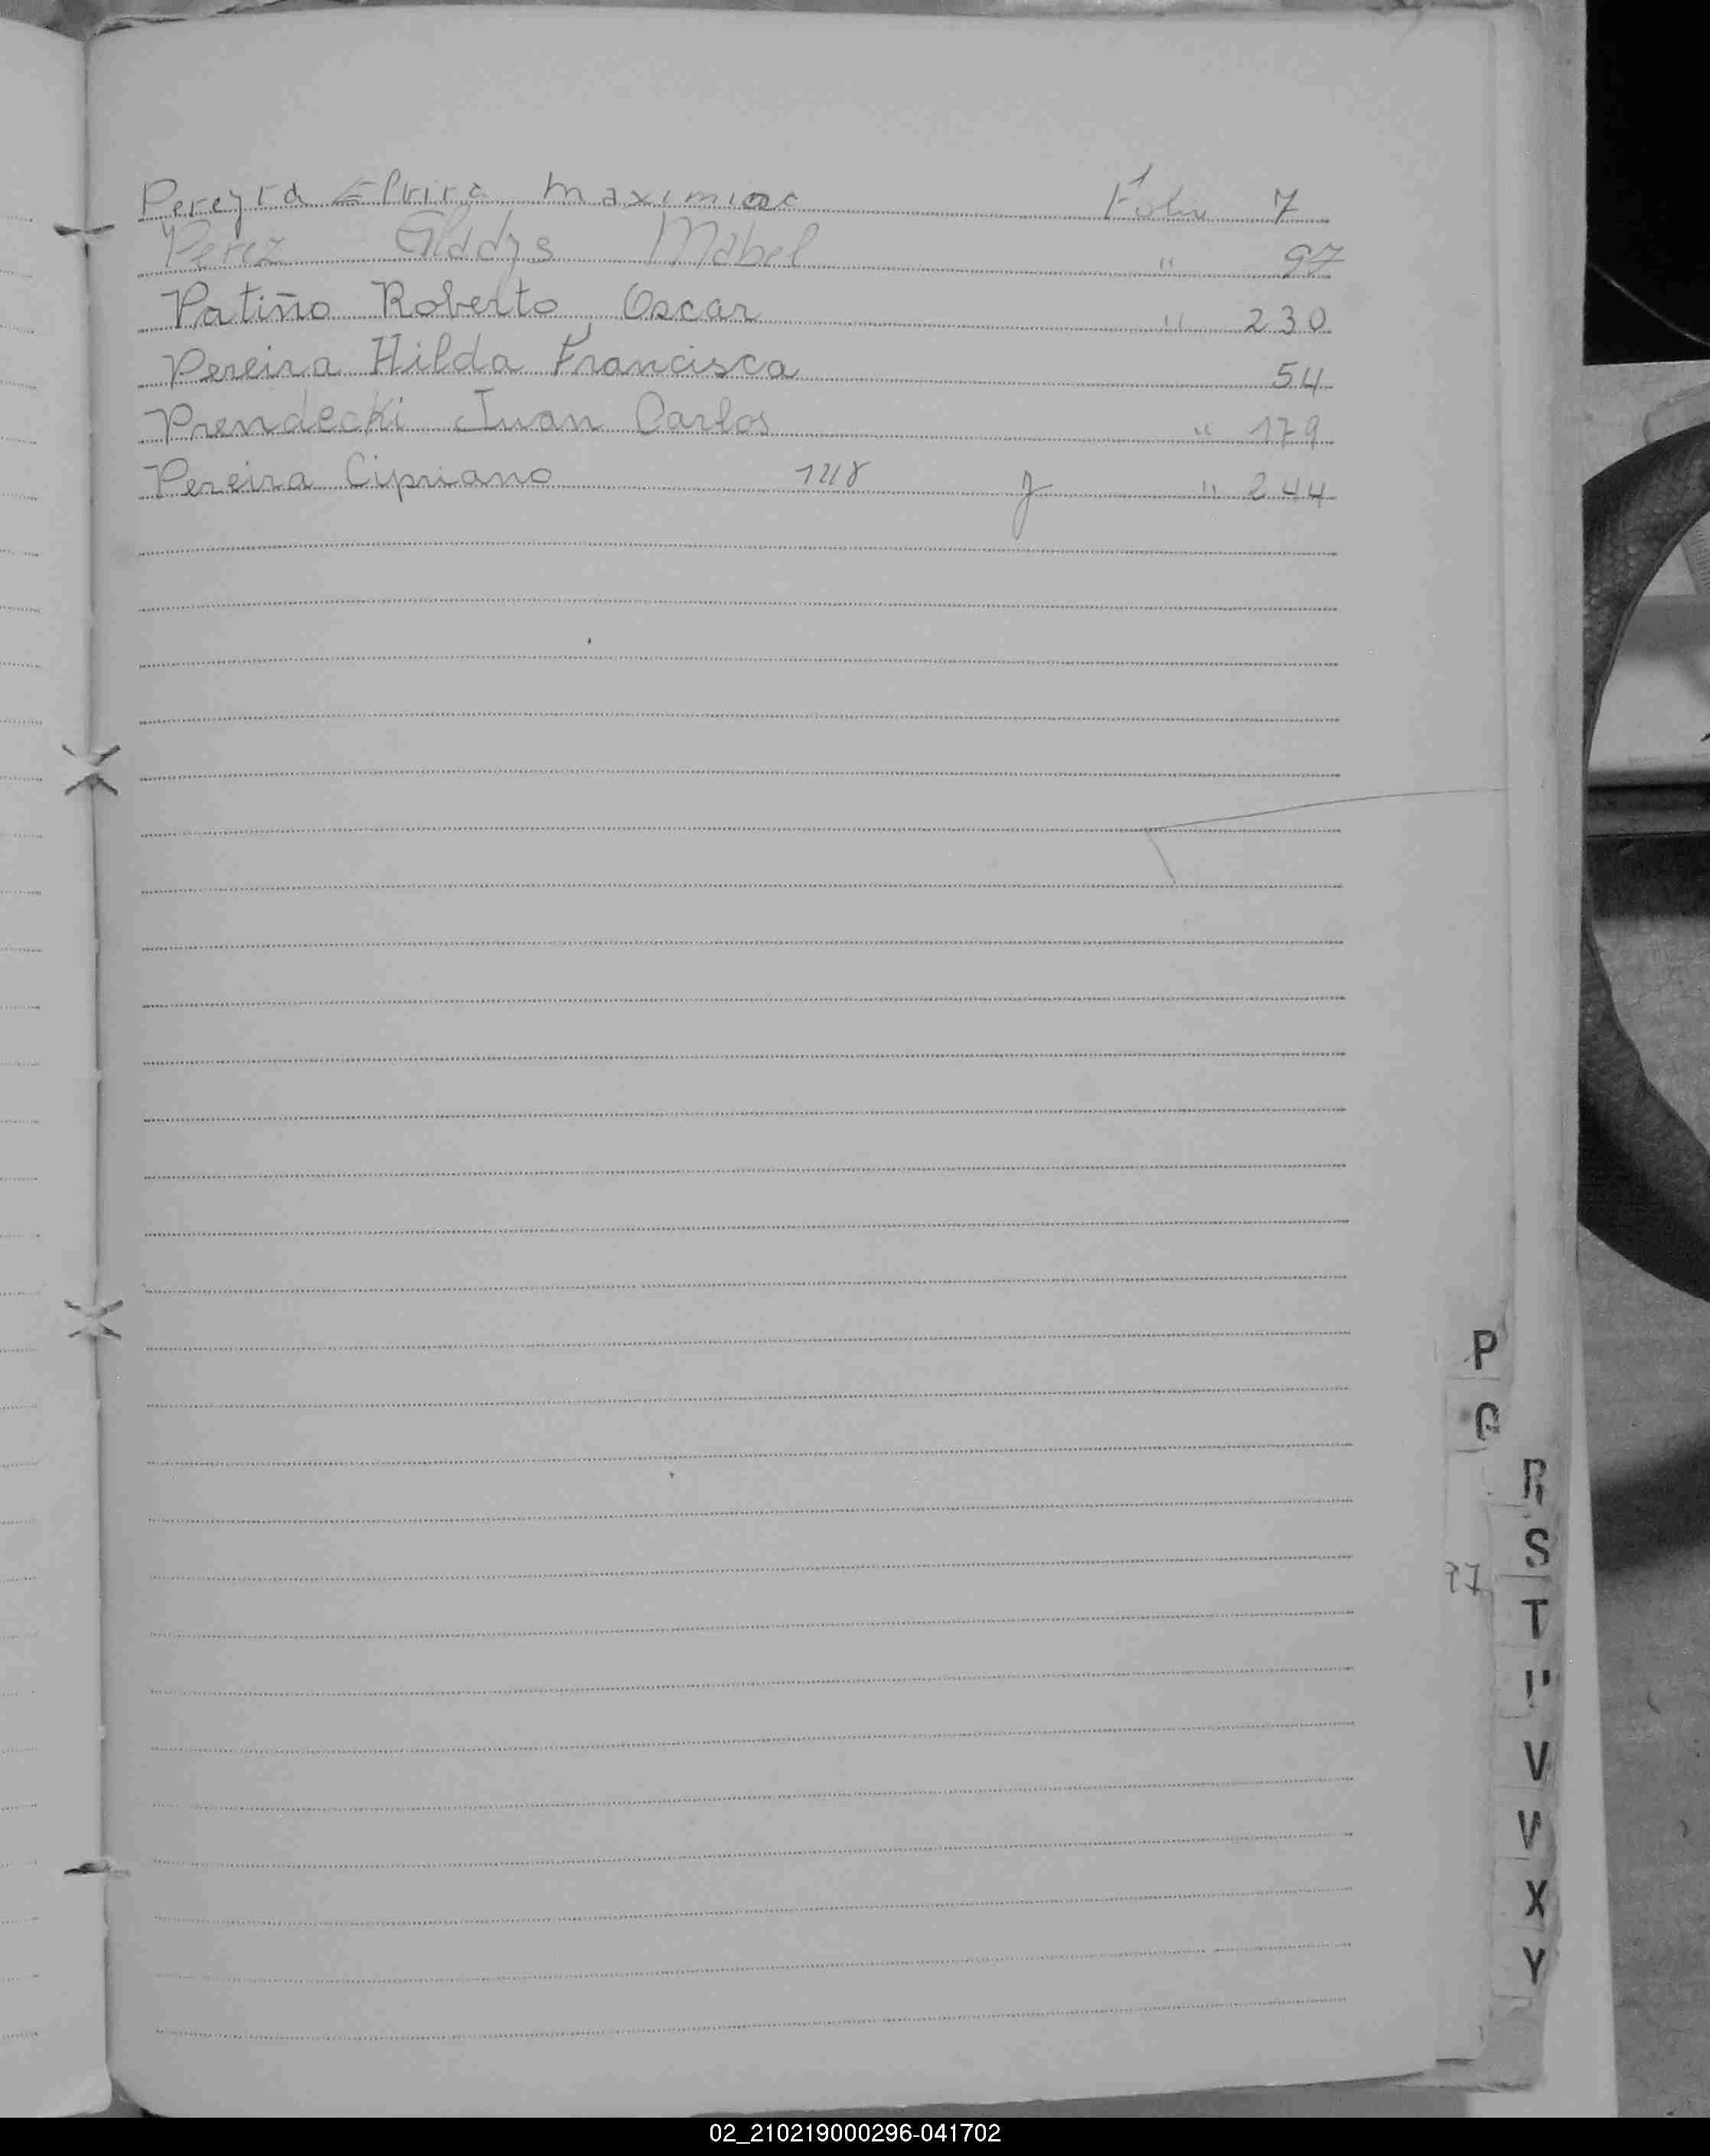 Pereyra Elvira Maximina Folio 7
Perez Gladys Mabel " 97
Patiño Roberto Oscar " 230
Pereira Hilda Francisca 54
Prendecki Juan Carlos " 179
Pereira Cipriano f " 244
P
Q
R
S
T
V
W
X
Y
02_210219000296-041702